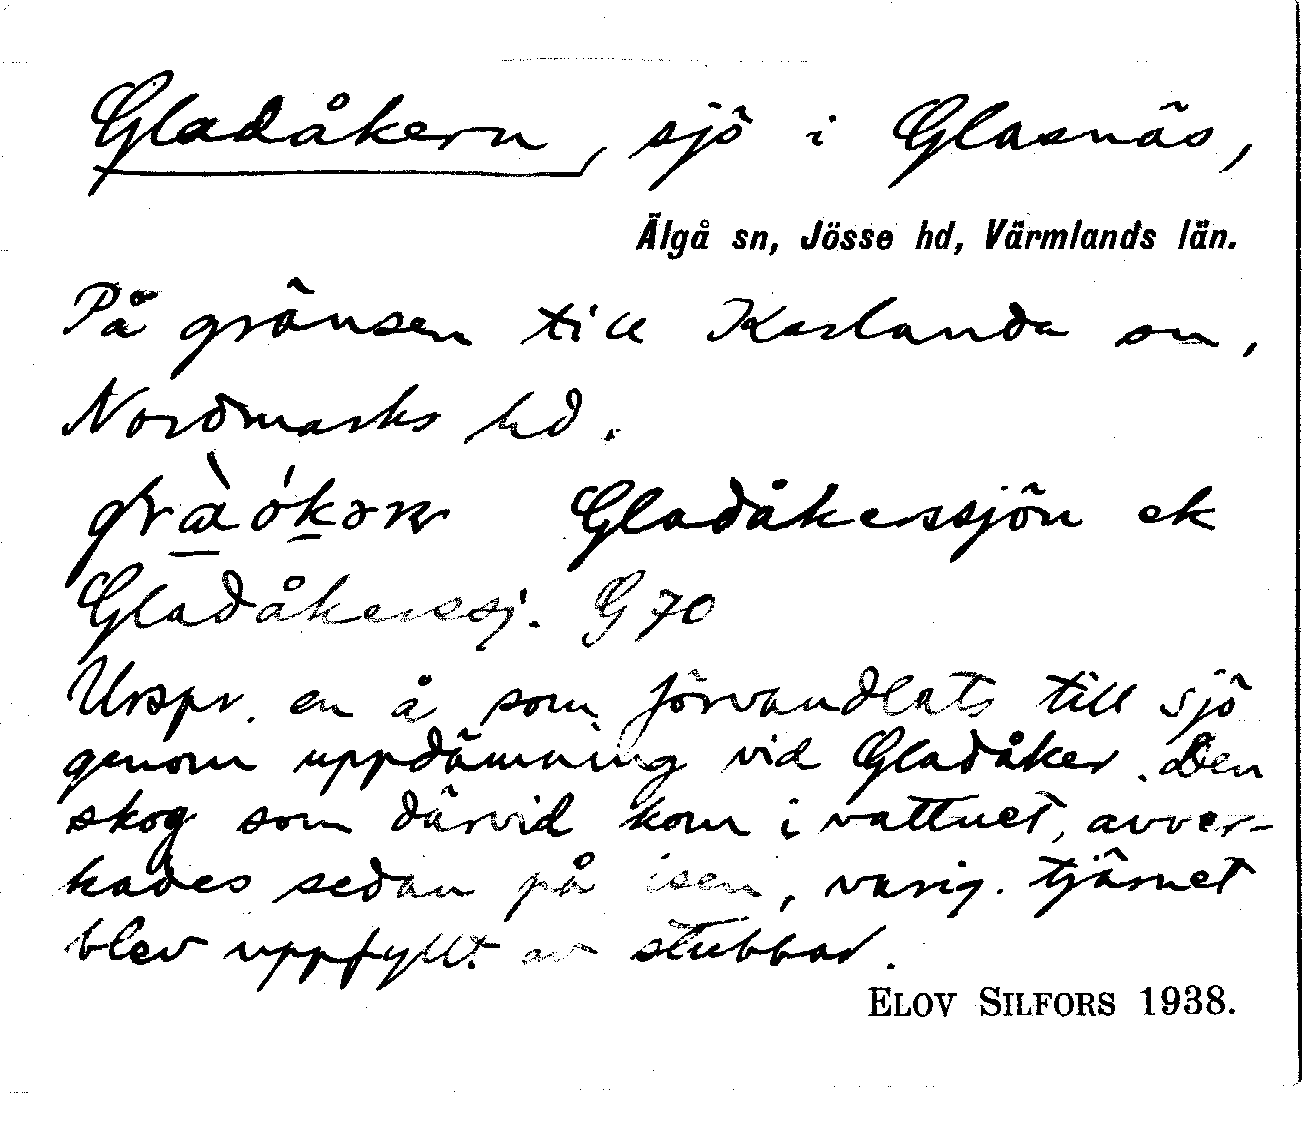 Gladåkern, sjö i Glasnäs,
Älgå sn, Jösse hd, Värmlands län.
På gränsen till Karlanda sn,
Nordmarks hd.
Gladåkerssjön ek
Gladåkerssj. G 70
Urspr. en å som förvandlats till sjö
genom uppdämning vid Gladåker. Den
skog som därvid kom i vattnet, avver-
kades sedan på isen, varig. tjärnet
blev uppfyllt av stubbar.
ELOV SILFORS 1938.